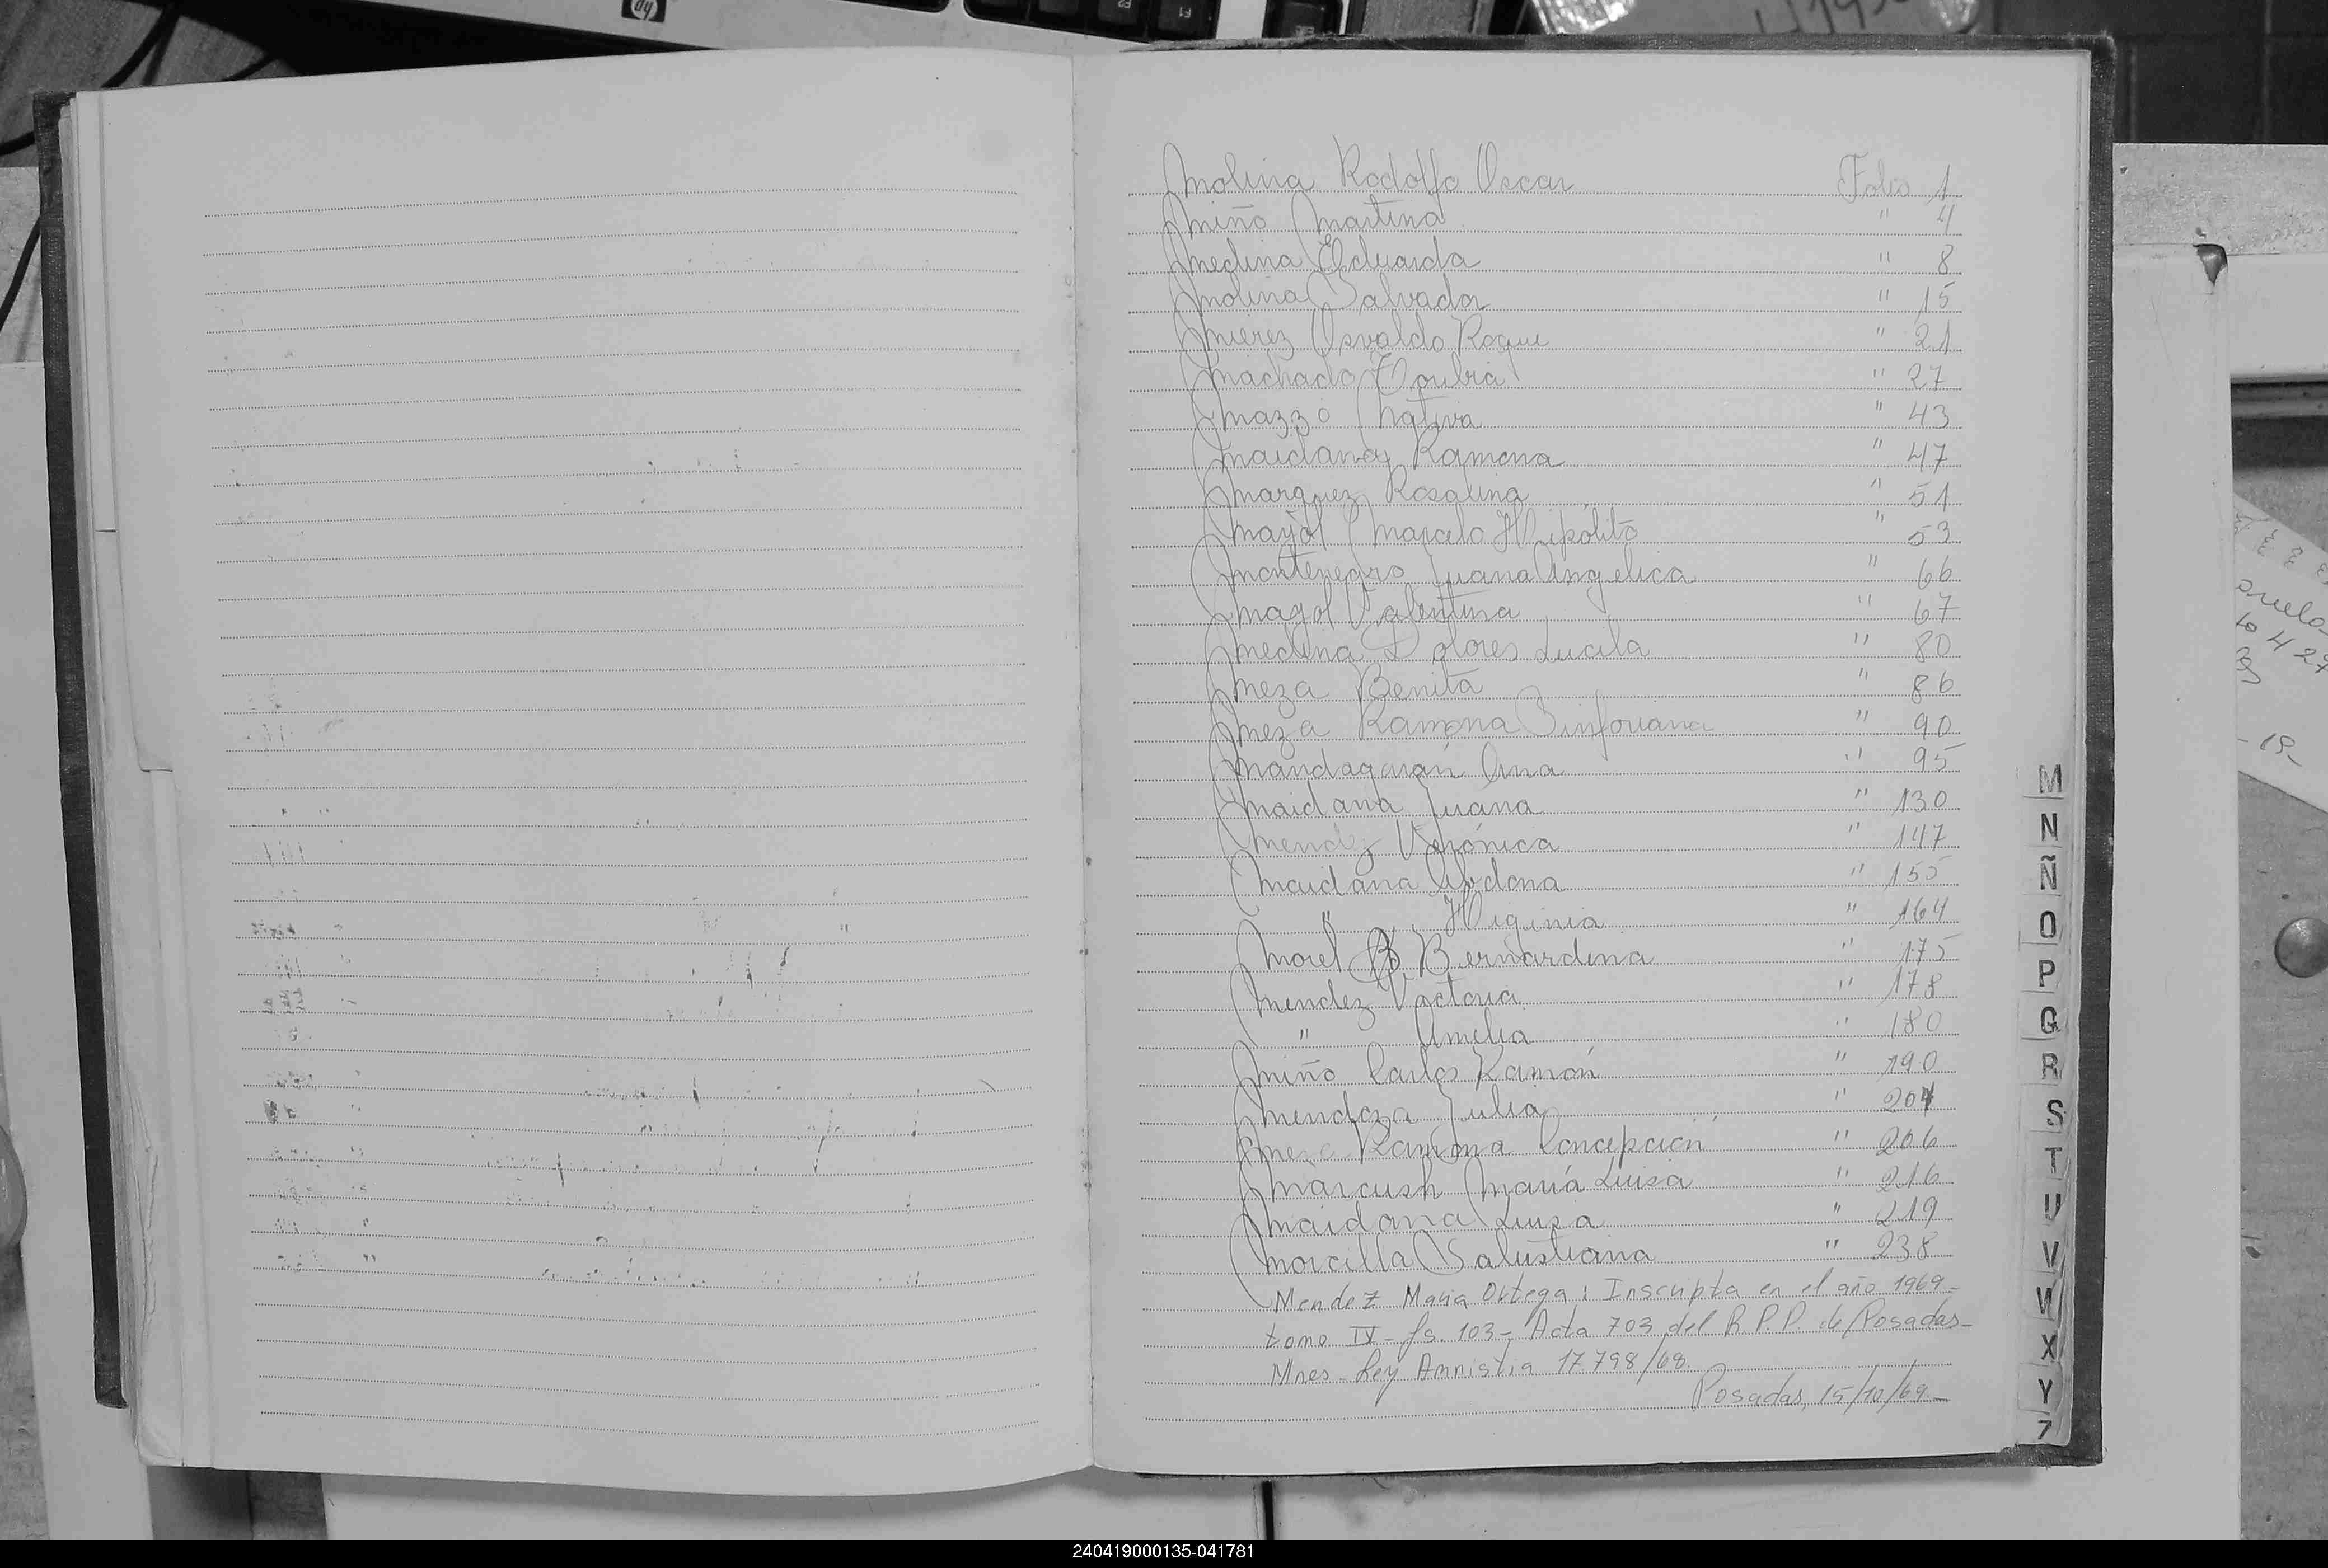 Molina Rodolfo Oscar Folio 1
Miño Martina " 4
Medina Eduarda " 8
Molina Salvador " 15
Mierez Osvaldo Roque " 21
Machado Toribia " 27
Mazzo Nativa " 43
Maidana Ramona " 47
Marquez Rosalina " 51
Mayol Marcelo Hipólito " 53
Montenegro Juana Angelica " 66
Mayol Valentina " 67
Medina Dolores Lucila " 80
Meza Benita " 86
Meza Ramona Sinforiana " 90
Mandagarán Ana " 95
Maidana Juana " 130
Mendez Verónica " 147
Maidana Abdona " 155
" Higinia " 164
Morel B. Bernardina " 175
Mendez Victoria " 178
" Amelia " 180
Miño Carlos Ramón " 190
Mendoza Julia " 204
Meza Ramona Concepción " 206
Marcush María Luisa " 216
Maidana Luisa " 219
Morcilla Salustiana " 238
Mendez Maria Ortega: Inscripta en el año 1969-
tomo IV- fs. 103-, Acta 703 del R.P.P. de Posadas-
Mnes- Ley Amnistia 17.798/68.
Posadas, 15/10/69-
M
N
Ñ
O
P
Q
R
S
T
U
V
W
X
Y
Z
hp
240419000135-041781